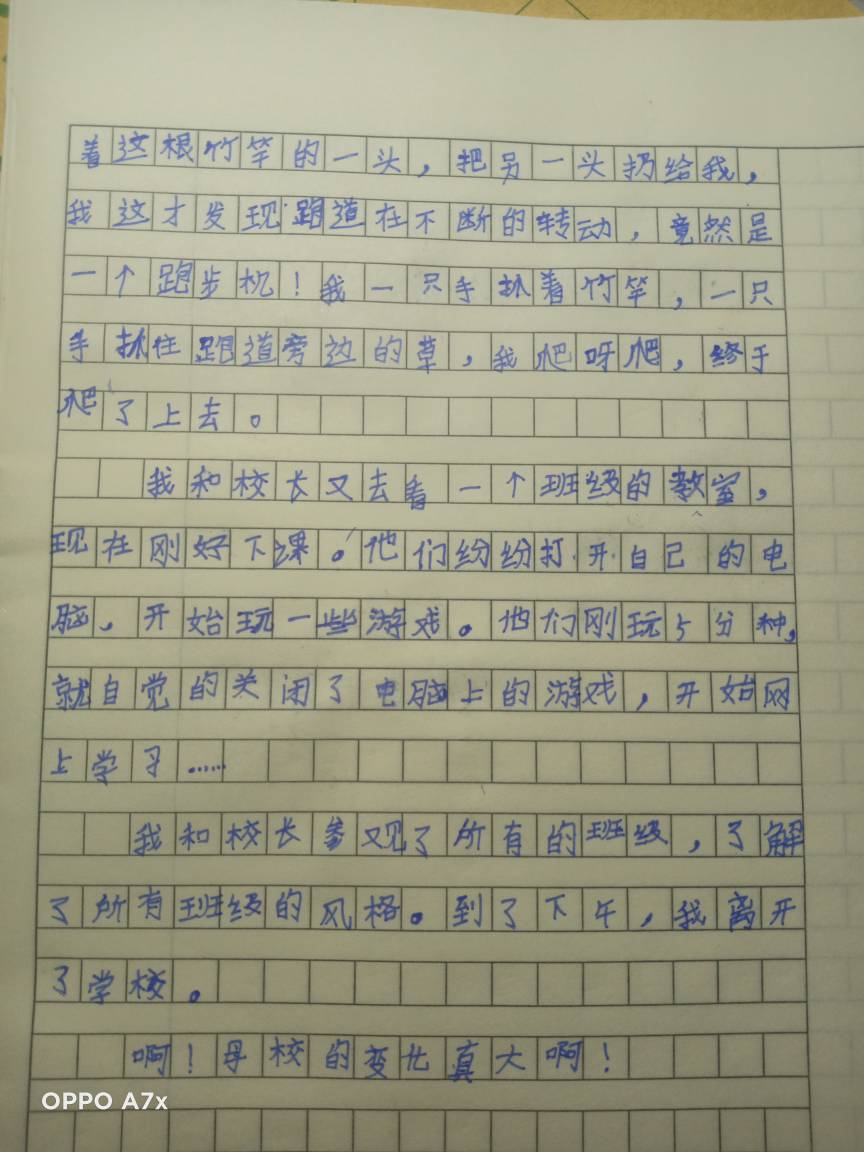 着这根竹竿的一头，把另一头扔给我，
我这才发现跑道在不断的转动，竟然是
一个跑步机！我一只手抓着竹竿，一只
手抓住跑道旁边的草，我爬呀爬，终于
爬了上去。
我和校长又去看一个班级的教室，
现在刚好下课。他们纷纷打开自己的电
脑、开始玩一些游戏。他们刚玩5分种，
就自觉的关闭了电脑上的游戏，开始网
上学习……
我和校长参观了所有的班级，了解
了所有班级的风格。到了下午，我离开
了学校。
啊！母校的变化真大啊！
OPPO A7x